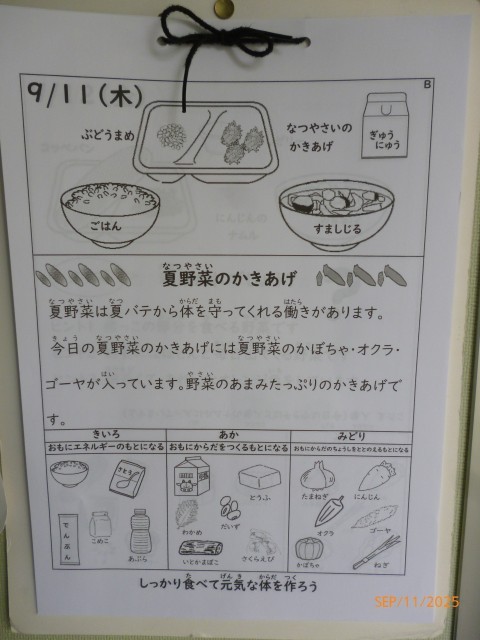 9/11(木)
B
ぶどうまめ
なつやさいの
かきあげ
ぎゅう
にゅう
ごはん
すましじる
夏野菜のかきあげ
夏野菜は夏バテから体を守ってくれる働きがあります。
今日の夏野菜のかきあげには夏野菜のかぼちゃ・オクラ・
ゴーヤが入っています。野菜のあまみたっぷりのかきあげで
す。
きいろ
おもにエネルギーのもとになる
さとう
でんぷん
こめこ
あぶら
あか
おもにからだをつくるもとになる
とうふ
わかめ
だいず
いとかまぼこ
さくらえび
みどり
おもにからだのちょうしをととのえるもとになる
たまねぎ
にんじん
オクラ
ゴーヤ
かぼちゃ
ねぎ
しっかり食べて元気な体を作ろう
SEP/11/2025